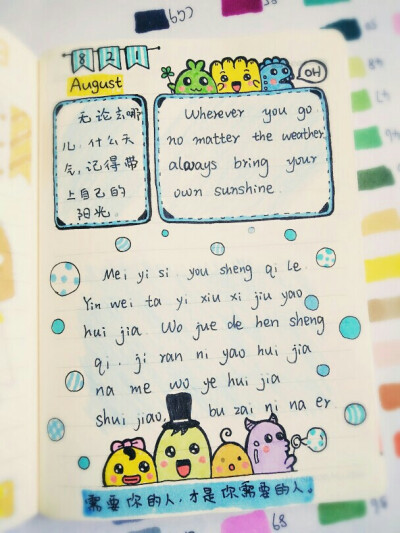 821
August
OH
无论去哪
儿,什么天
气,记得带
上自己的
阳光。
Wherever you go
no matter the weather
always bring your
own sunshine.
Mei yi si you sheng qi le.
Yin wei ta yi xiu xi jiu yao
hui jia Wo jue de hen sheng
qi. ji ran ni yao hui jia
na me wo ye hui jia
shui jiao, bu zai ni na er
需要你的人,才是你需要的人。
68